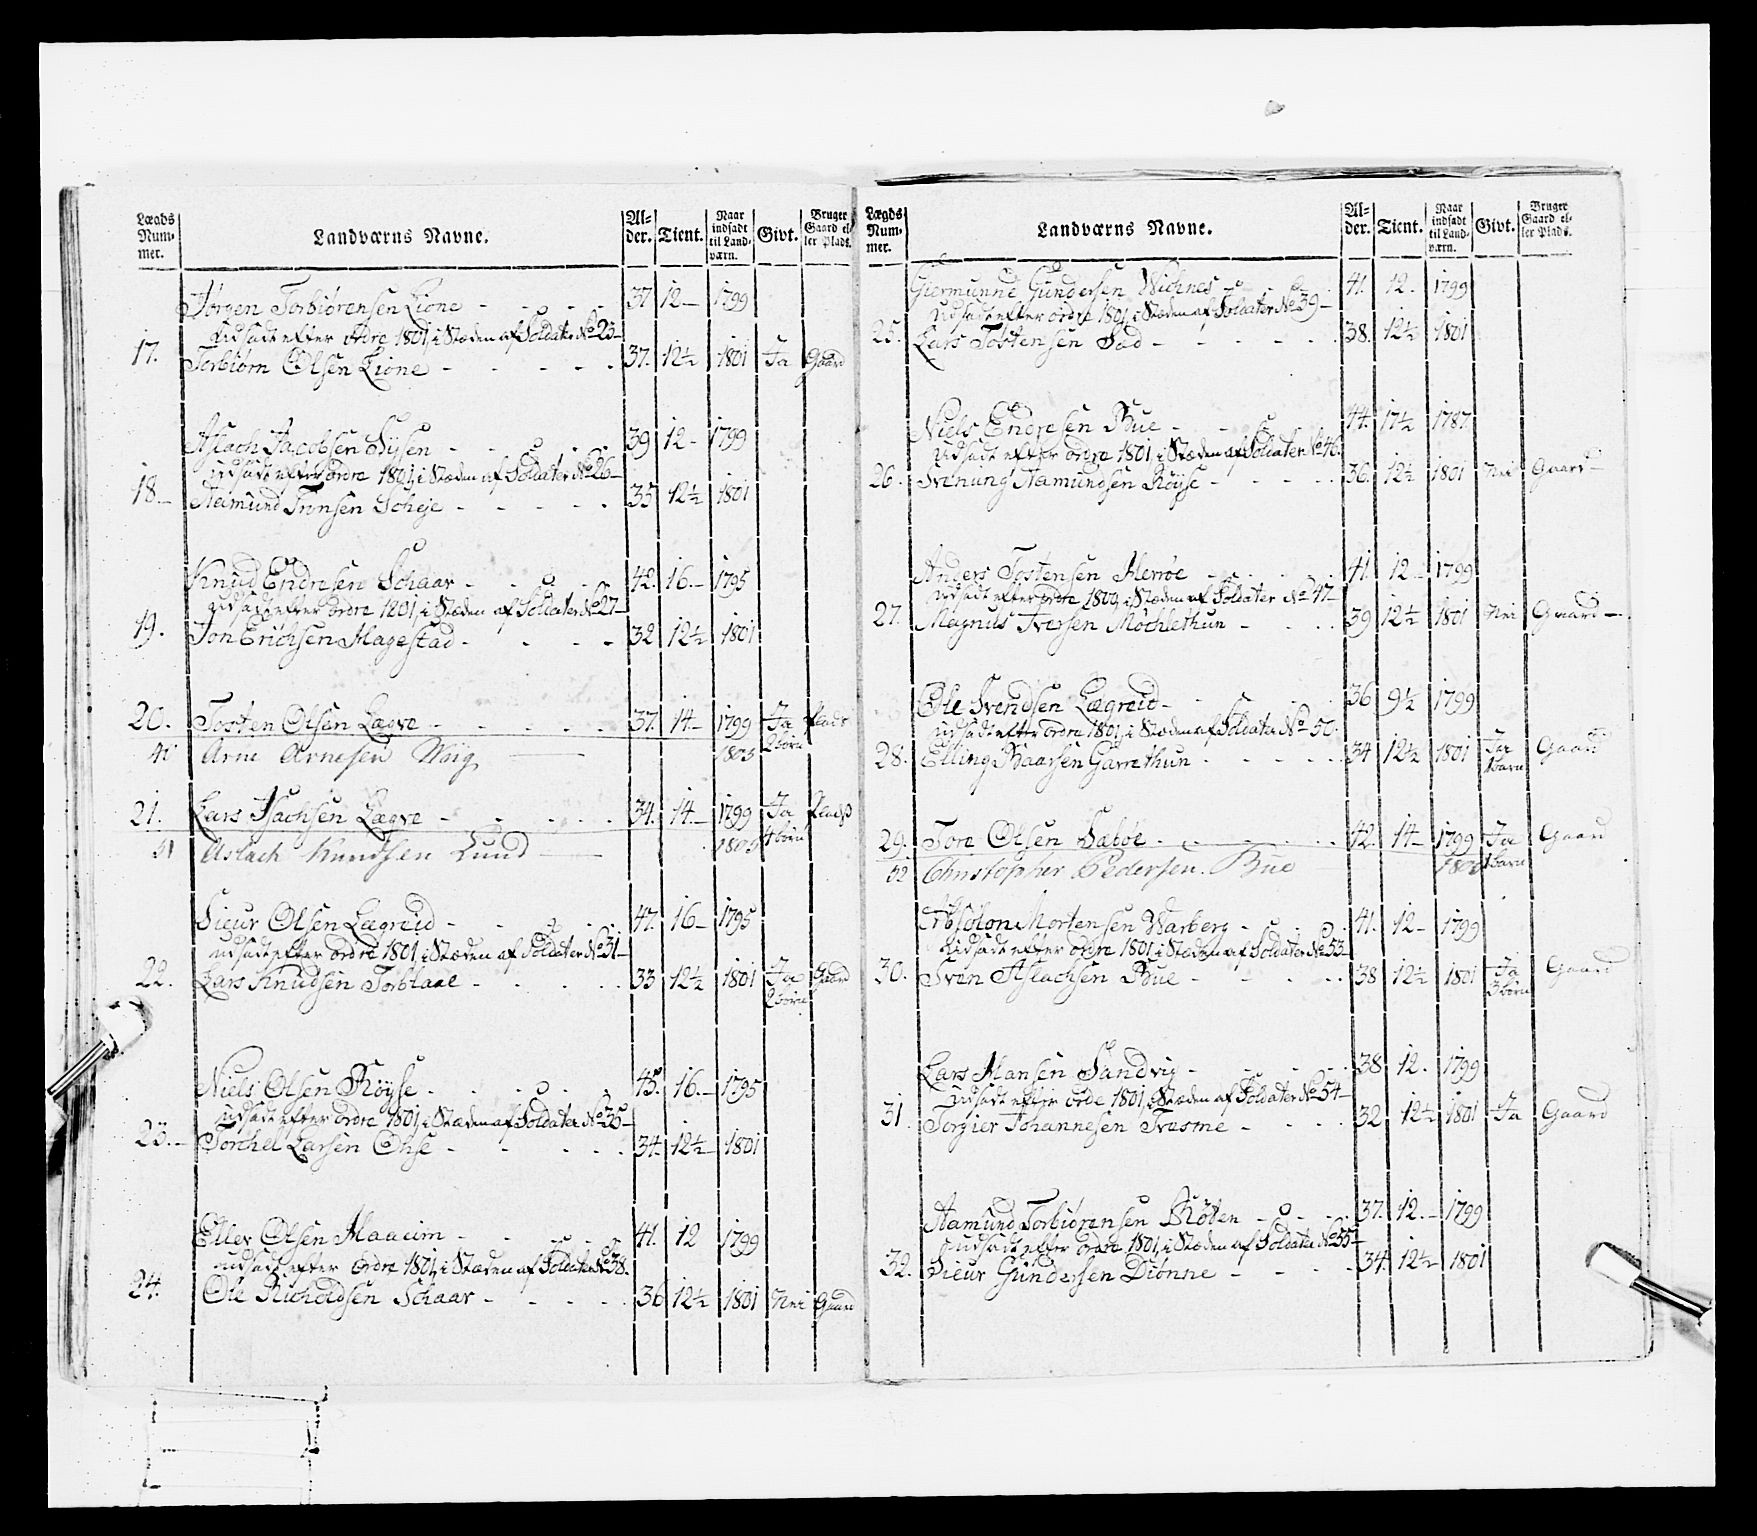 Lægds Nummer. Landværns Navne. Alder. Tient. Naar indsadt til Landværn. Givt. Bruger Gaard eller Plads.
Jørgen Torbiörensen Lione - - - - 37 12 - 1799
Udsadt efter Ordre 1801, i Stæden af Soldater No 23 -
17. Torbiörn Olsen Lione - - - - 37. 12½ 1801 Ja Gaard
Aslach Jacobsen Sysen - - - - 39 12 - 1799
udsadt efter ordre 1801, i Stæden af Soldater No 26 -
18. - Aamund Tronsen Scheje - - - - 35 12½ 1801
Knud Endresen Schaar - - - - 42. 16. - 1795
udsadt efter ordre 1801, i Stæden af Soldater No 27 -
19. Jon Erichsen Magestad - - - - 32 12½ 1801
20. Tosten Olsen Lægre - - - - 37. 14 - 1799 Ja Plads
Arne Arnesen 1805 2 börn
21. Lars Isachsen Lægre - - - - 34. 14. - 1799 Ja Plads
51 Aslach Knudsen Lund 1805 4 börn
Sieur Olsen Lægreid - - - - 47. 16 - 1795
udsadt efter ordre 1801, i Stæden af Soldater No 31 -
22. Lars Knudsen Torblaae - - - - 33 12½ 1801 Ja Gaard
2 börn
Niels Olsen Röyse - - - - 45. 16. - 1795
udsadt efter ordre 1801, i Stæden af Soldater No 35 -
23. - Torchel Larsen Onse - - - - 34. 12½ - 1801
Eller Olsen Maaeim - - - - 41. 12 1799
udsadt efter Ordre 1801, i Stæden af Soldater No 38.
24. Ole Richoldsen Schaar - - - - 36 12½ 1801 Nei Gaard
Lægds Nummer. Landværns Navne. Alder. Tient. Naar indsadt til Landværn. Givt. Bruger Gaard eller Plads.
Giermund Gundersen Wichnes - - 41. 12. 1799
Udsadt efter ordre 1801, i Stæden af Soldater No 39 -
25. Lars Tostensen Sæd - - - - 38. 12½ 1801
Niels Endresen Bue - - - - 44. 17½ 1787
Udsadt efter ordre 1801, i Stæden af Soldater No 46.
26. Svenung Aamundsen Röyse - - - - 36. 12½ 1801 Nei Gaard -
Anders Tostensen Merröe - - - 41. 12 - 1799
udsadt efter ordre 1801, i Stæden af Soldater No 47.
27. Magnus Iversen Möchlethun - - - 39 12½ 1801 Nei Gaard -
Ole Svendsen Lægreid - - - 36 9½ 1799
udsadt efter ordre 1801, i Stæden af Soldater No 50.
28. Elling Baarsen Garrethun - - - - 34 12½ 1801 Ja Gaard
1 barn
29. Tore Olsen Sæböe - - - - 42. 14 - 1799 Ja Gaard
52 Christopher Pedersen Bue 1 barn
Absolon Mortensen Warberg - - - 41. 12 - 1799
Udsadt efter ordre 1801, i Stæden af Soldater No 53 -
30. Sven Aslachsen Bue - - - - 38 12½ 1801 Ja Gaard
3 börn
Lars Hansen Sandvig - - - - 38 12. 1799
Udsadt efter orde 1801, i Stæden af Soldater No 54 -
31. Torgier Johannesen Tvesme - - - - 32 12½ 1801 Ja Gaard
Aamund Torbiörensen Röten - - - 37. 12. - 1799
udsadt efter ordre 1801, i Stæden af Soldater No 55 -
32. Sieur Gundersen Diönne - - - - 34. 12½ 1801